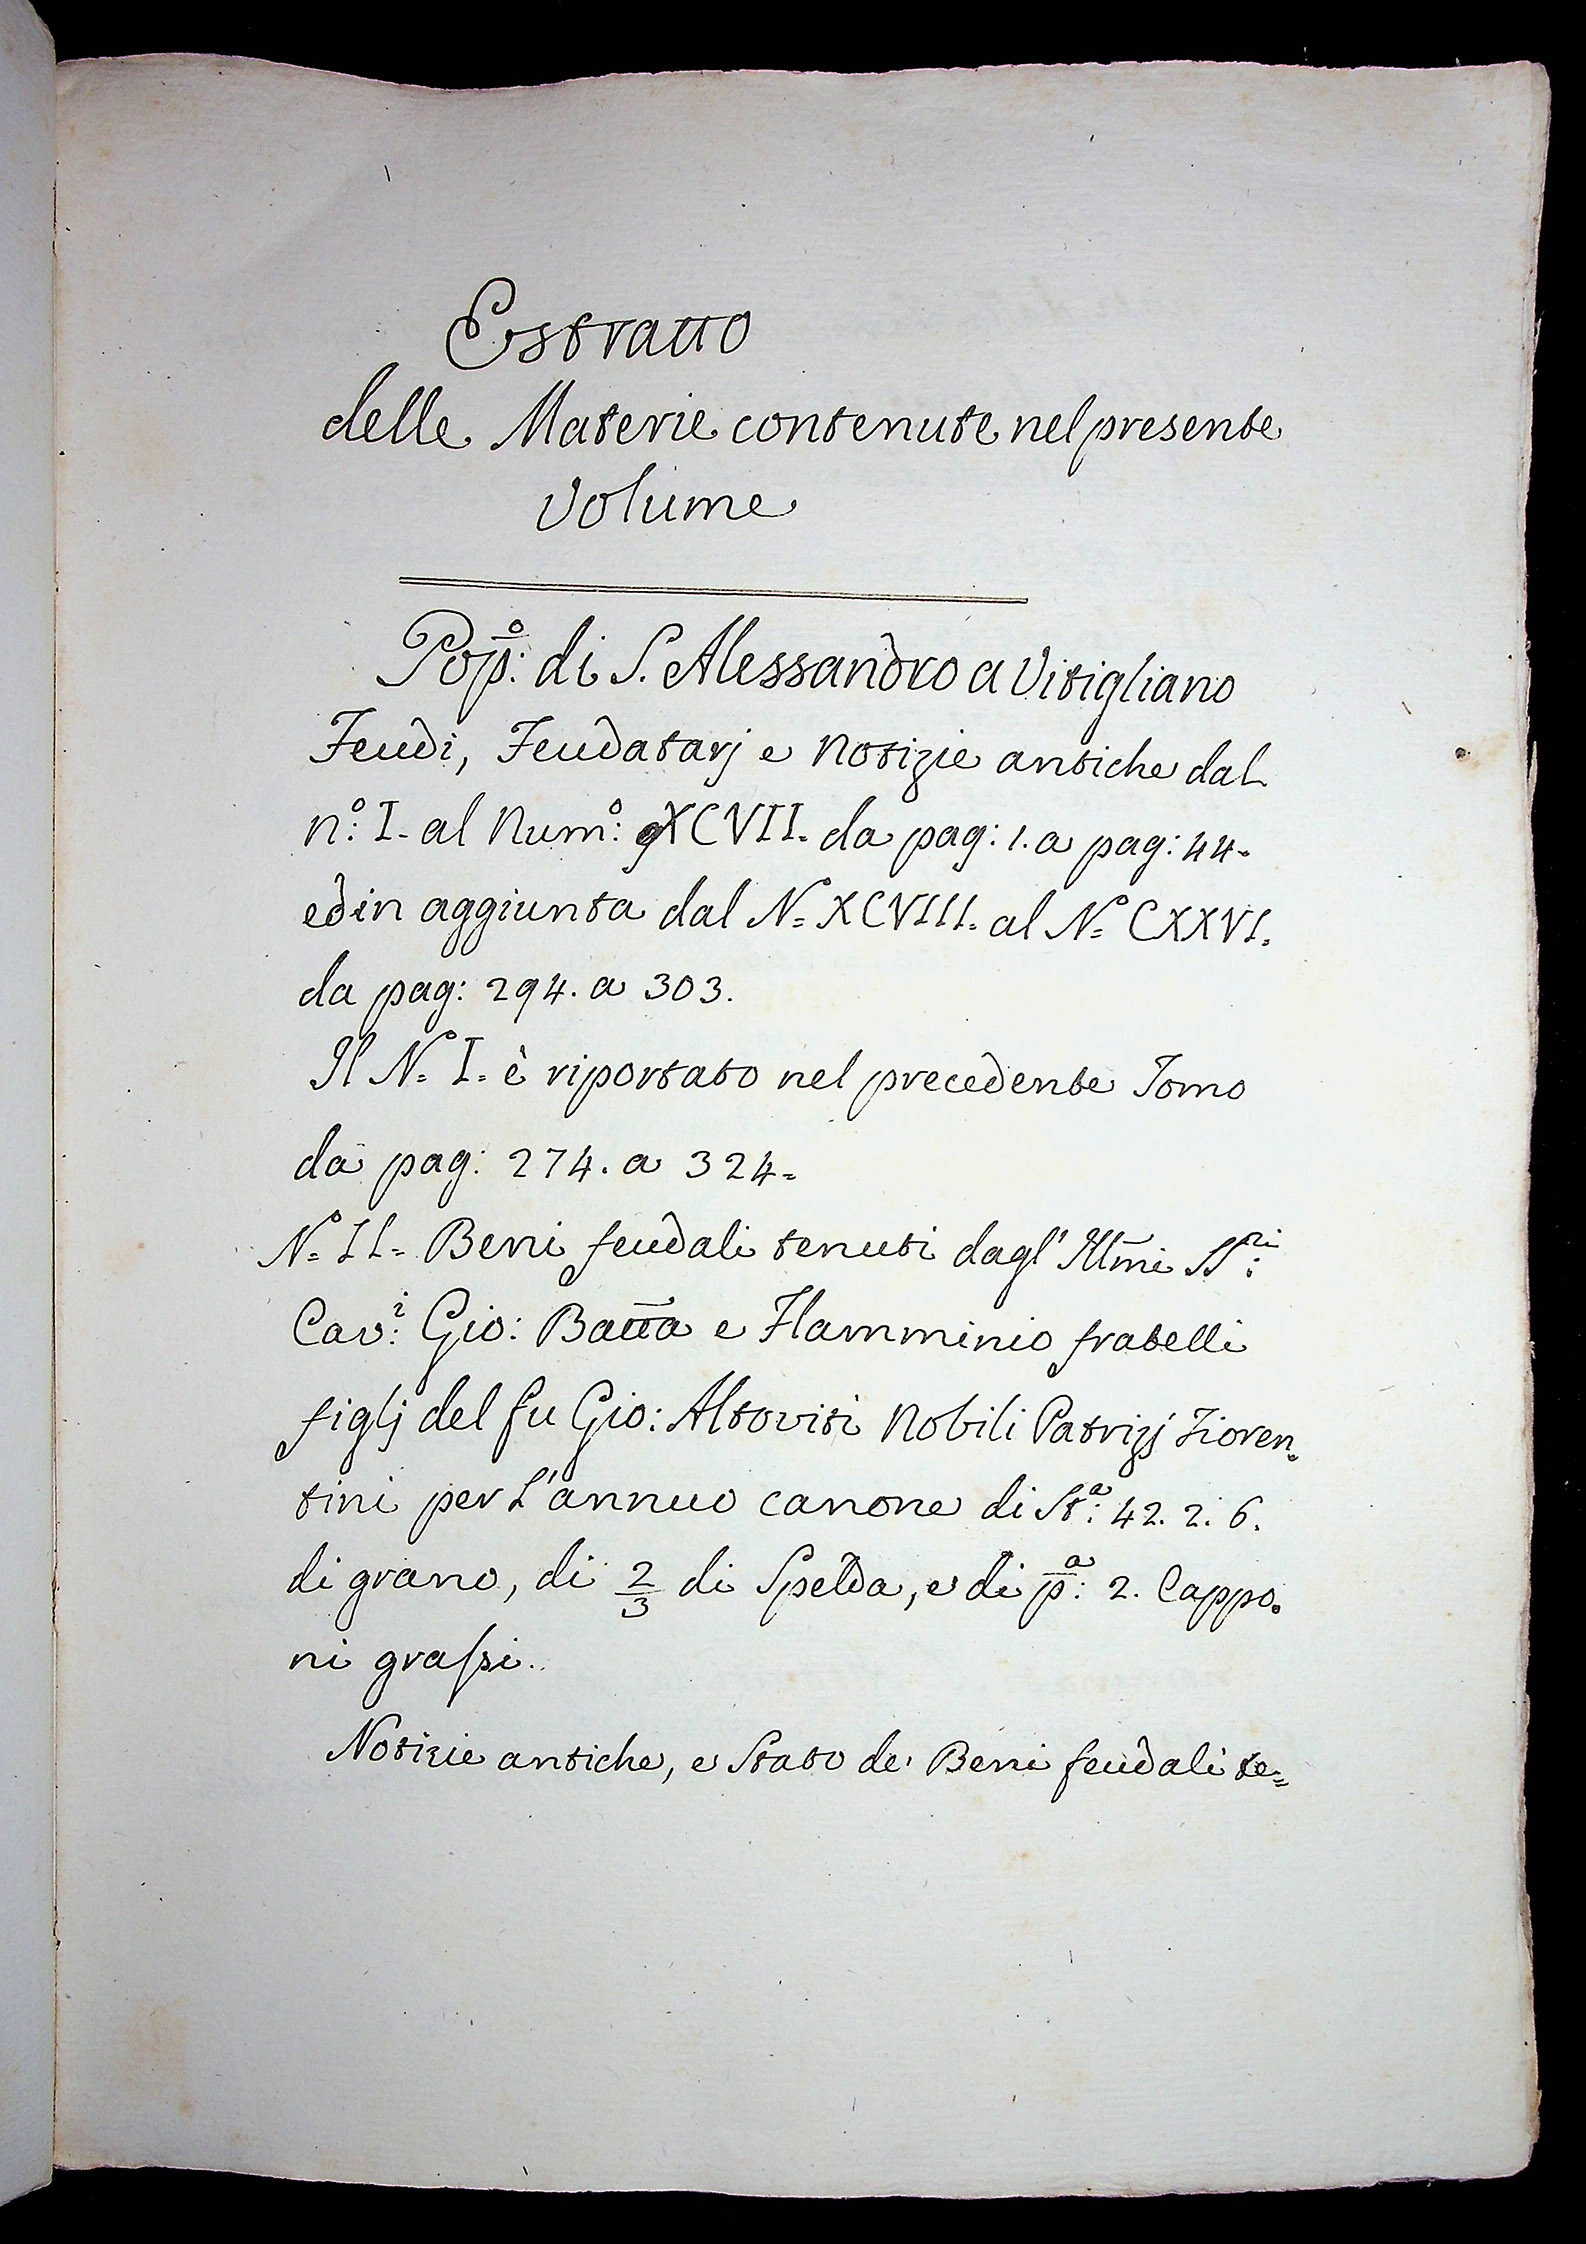 Estratto
delle Materie contenute nel presente
volume
Pop̅:º di S. Alessandro a Vitigliano
Feudi, Feudatarj e Notizie antiche dal
n:º I. al Num:º XCVII. da pag: 1. a pag: 44.
ed in aggiunta dal Nº XCVIII. al Nº CXXVI.
da pag: 294. a 303.
Il Nº I. è riportato nel precedente Tomo
da pag: 274. a 324.
Nº II. Beni feudali tenuti dagl' Ill̅mi SS:ri
Cav:i Gio: Batt̅a e Flamminio fratelli
figlj del fu Gio: Altoviti Nobili Patrizj Fioren=
tini per L'annuo canone di St:a 42. 2. 6.
di grano, di 2/3 di Spelda, e di p̅:a 2. Cappo=
ni grassi.
Notizie antiche, e Stato de' Beni feudali te=